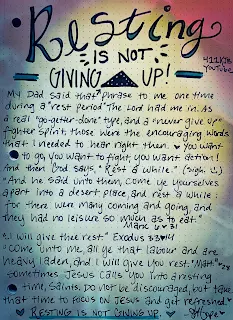 Resting
IS NOT
GIVING UP!
YouTube
My Dad said that phrase to me one time
during a "rest period" The Lord had me in. As
a real "go-getter-done" type, and a "never give up"
fighter spirit, those were the encouraging words
that I needed to hear right then. ♥ You want
to go, you want to fight, you want action!
And then God says, "Rest a while." (sigh. :)
"And he said unto them, come ye yourselves
apart into a desert place, and rest a while:
for there were many coming and going, and
they had no leisure so much as to eat."
Mark 6 ♥ 31
"...I will give thee rest." Exodus 33 ♥ 14
"Come unto me, all ye that labour and are
heavy laden, and I will give you rest." Matt. 11 ♥ 28
Sometimes Jesus calls you into a resting
time, Saints. Do not be discouraged, but take
that time to FOCUS ON JESUS and get refreshed.
♥ RESTING IS NOT GIVING UP. ♥